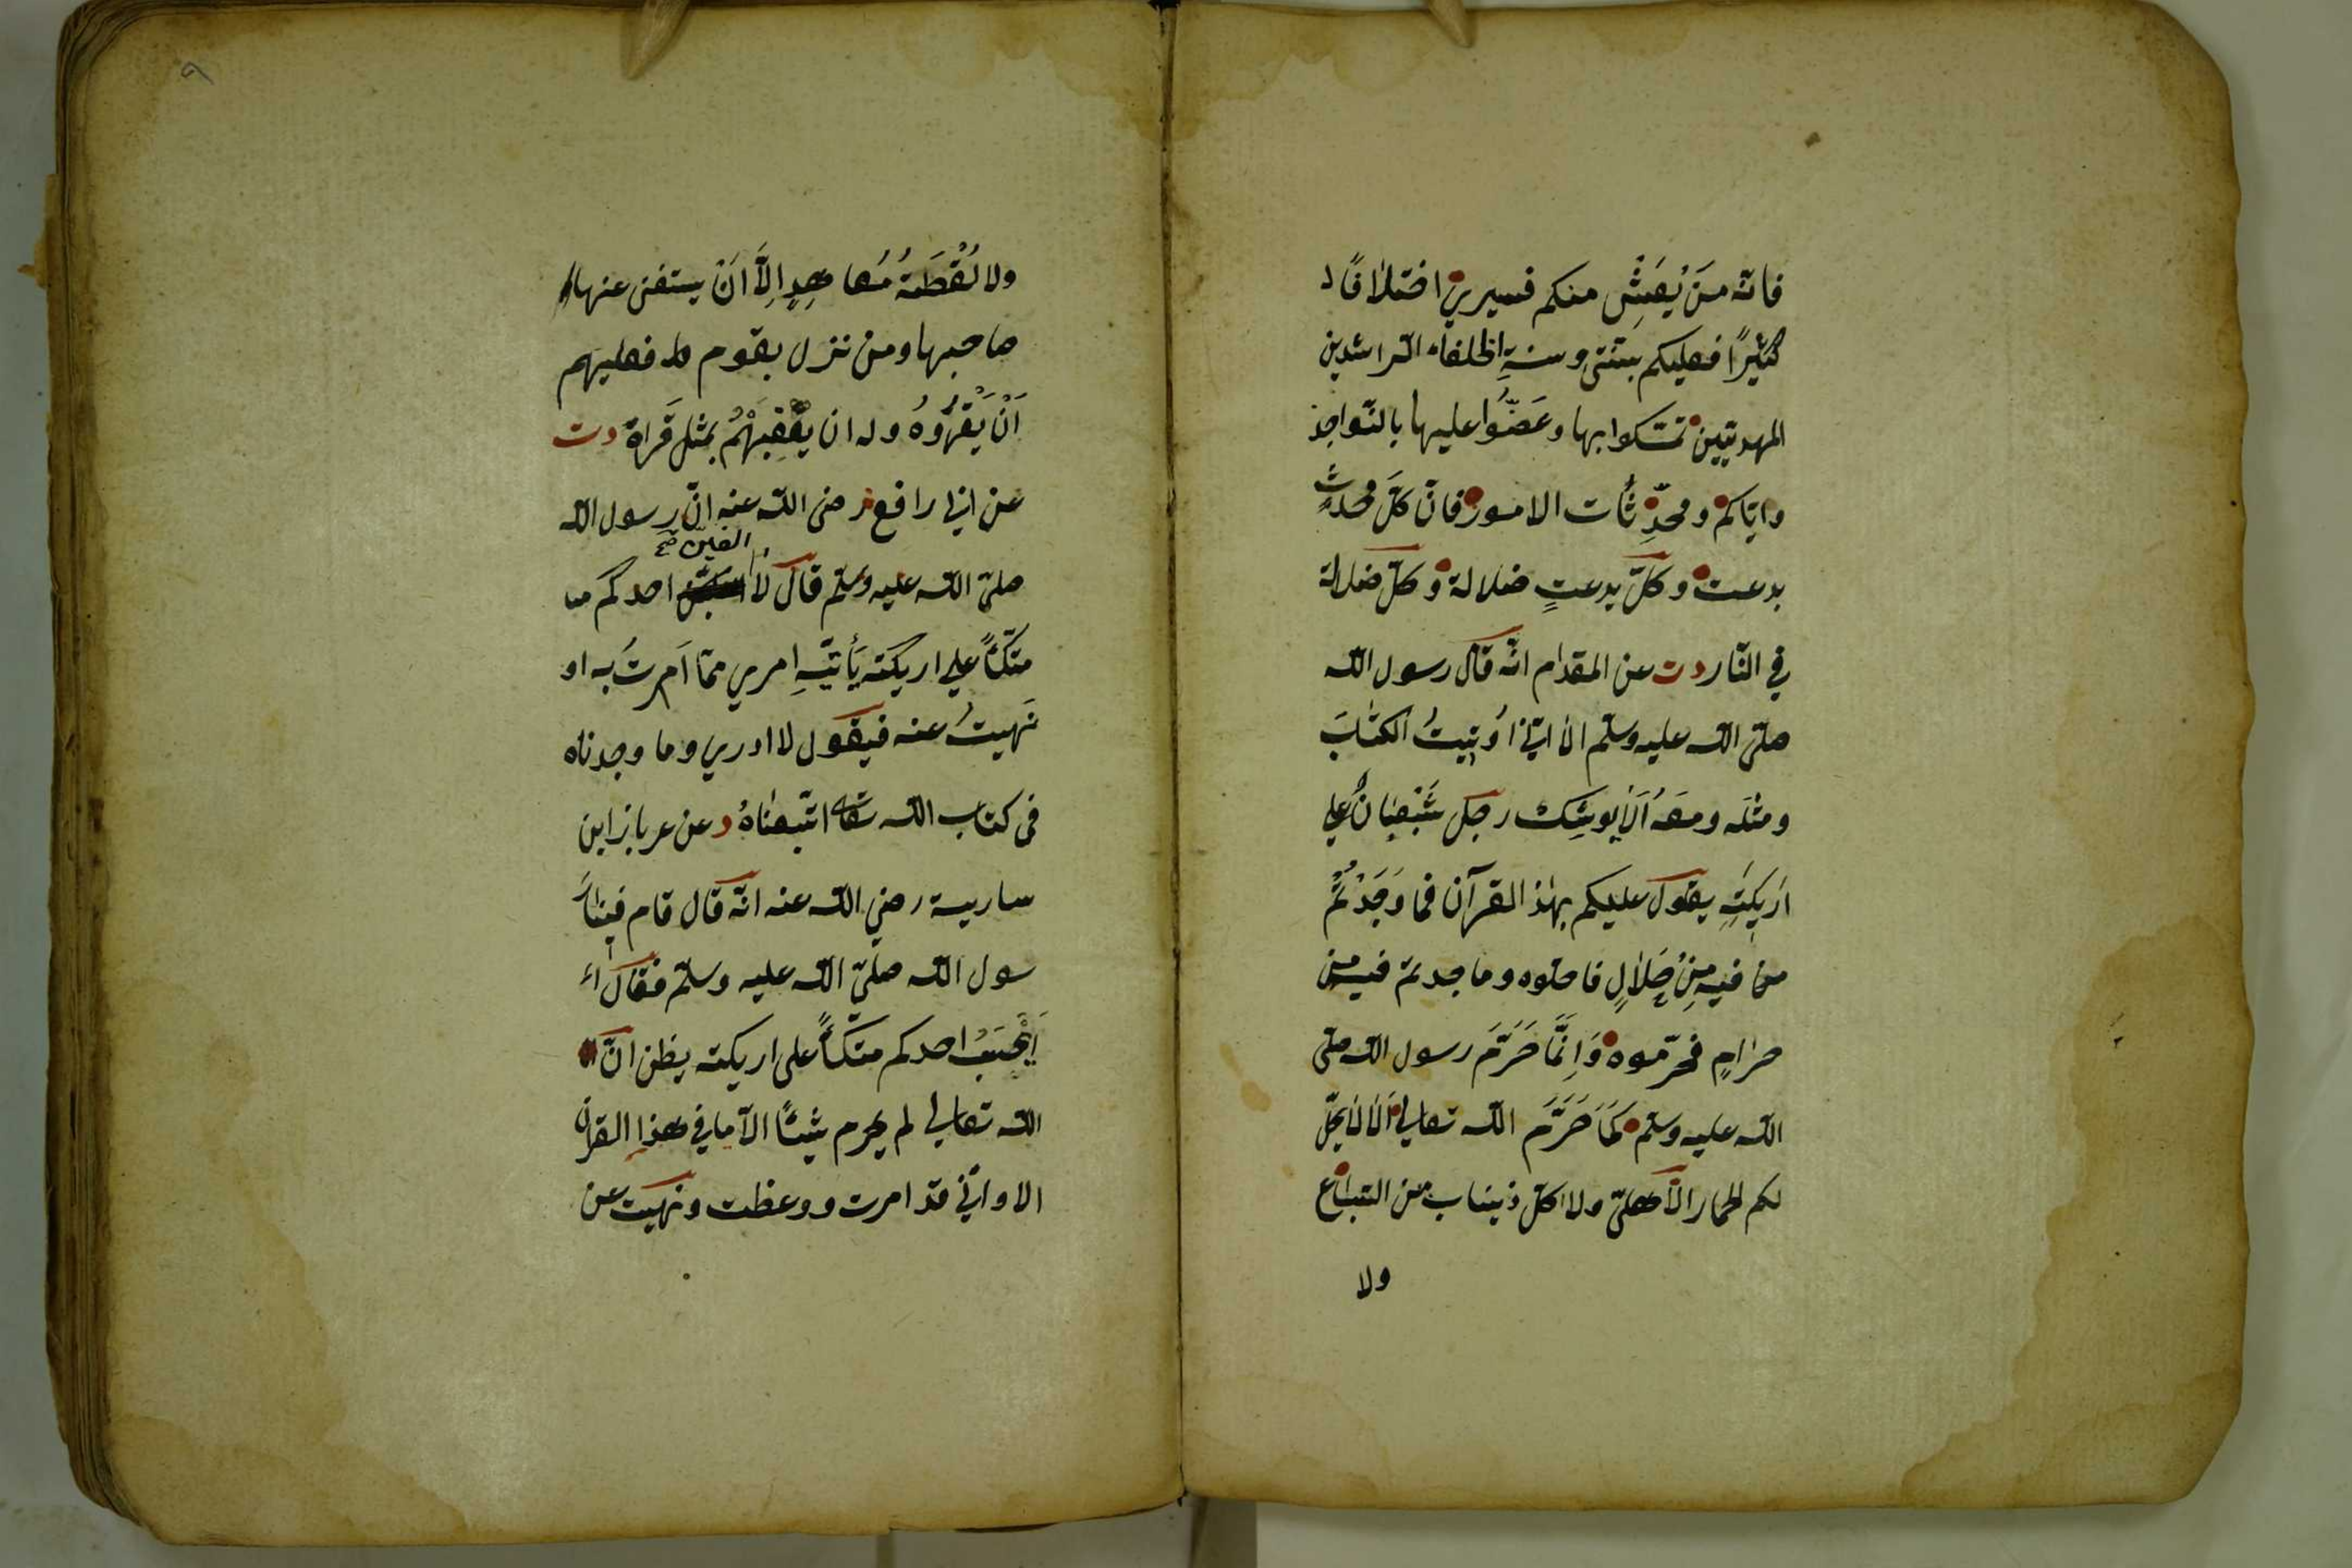 فانّه مَنْ يَعِشْ منكم فسيري اختلافًا
كثيرًا فعليكم بسنّتى وسنةِ الخلفاء الرّاشدين
المهديّين تمسّكوا بها وعَضُّوا عليها بالنّواجذ
وايّاكم ومحدِّثات الامور فانّ كلّ محدثٍ
بدعت وكلّ بدعتٍ ضلالة وكلّ ضلالة
في النّار دت عن المقدام انّه قال رسول اللّه
صلّى اللّه عليه وسلّم الا انّي اُوتيتُ الكتابَ
ومثلَه ومعَهُ اَلا يوشِك رجل شَبْعَانُ علي
اَريكتِهِ يقول عليكم بهذا القرآن فما وَجَدْتُمْ
من فيه مِنْ حَلَالٍ فاحلّوه وما جدتم فيه من
حرامٍ فحرّموه وَاِنَّمَا حَرَّمَ رسول اللّه صلّى
اللّه عليه وسلّم كَمَا حَرَّمَ اللّه تعالي اَلا لا يحلّ
لكم الحمار الاهليّ ولا كلّ ذيناب من السّباع
ولا
٩
ولا لُقْطَةُ مُعاهِدٍ اِلاَّ اَنْ يستغنى عنها
صاحبها ومن نزل بقوم فعليهم
اَنْ يَقْرُوهُ وله ان يُعْقِبَهُمْ بمثل قَراهُ دت
عن ابي رافع رضى اللّه عنه انّ رسول اللّه
صلّى اللّه عليه وسلّم قال لا الفين صح احدكم
متكّئاً علي اريكته يأتيهِ امري ممّا اَمرتُ به او
نَهيتُ عنه فيقول لا ادري وما وجدناه
فى كتاب اللّه تعالى اتّبعناهُ د عن عرباز ابن
سارية رضي اللّه عنه انّه قال قام فينا رَ
سول اللّه صلّى اللّه عليه وسلّم فقال
اَيَحْسَبُ احدكم متكّئاً على اريكته يظن انّ
اللّه تعالي لم يحرم شيئًا الاّ ما في هذا القران
الا وانّي قد امرت ووعظت ونهيت عن